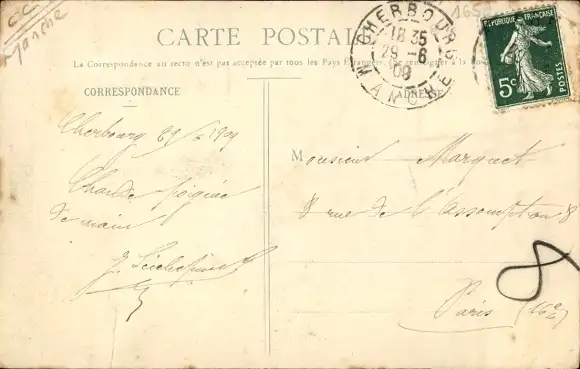 CC
Manche
165
CARTE POSTALE
La Correspondance au recto n'est pas acceptée par tous les Pays Étrangers. (Se renseigner à la
CORRESPONDANCE
ADRESSE
CHERBOURG
18 35
29-6
09
MANCHE
RÉPUBLIQUE FRANÇAISE
5c
POSTES
Cherbourg 29/6 1909
Chaude poignée
de main
J.
Monsieur Marquet
8 rue de l'Assomption 8
Paris (16e)
8